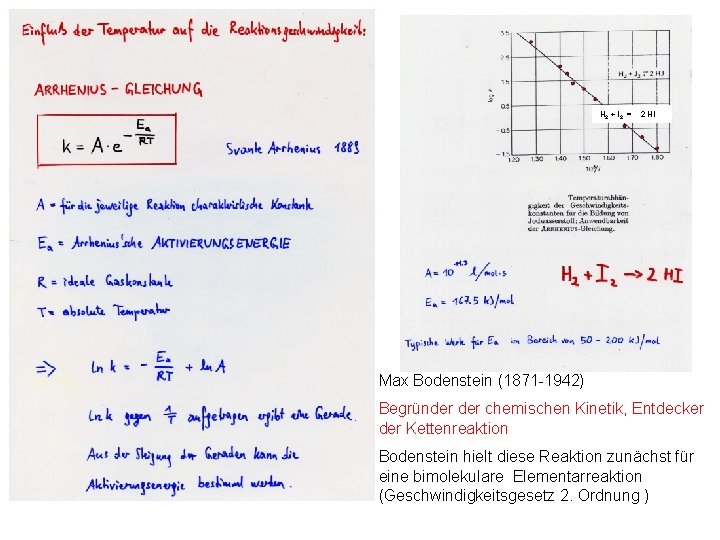 Einfluß der Temperatur auf die Reaktionsgeschwindigkeit:
ARRHENIUS - GLEICHUNG
k = A · e^(-Ea/RT)
Svante Arrhenius 1889
A = für die jeweilige Reaktion charakteristische Konstante
Ea = Arrhenius'sche AKTIVIERUNGSENERGIE
R = ideale Gaskonstante
T = absolute Temperatur
=> ln k = - Ea/RT + ln A
ln k gegen 1/T aufgetragen ergibt eine Gerade.
Aus der Steigung der Geraden kann die
Aktivierungsenergie bestimmt werden.
3.5
2.5
1.5
0.5
-0.5
-1.5
log k
H2 + J2 2 HJ
H2 + I2 = 2 HI
1.20 1.30 1.40 1.50 1.60 1.70 1.80
Temperaturabhän-
gigkeit der Geschwindigkeits-
konstanten für die Bildung von
Jodwasserstoff; Anwendbarkeit
der ARRHENIUS-Gleichung.
A = 10^11.3 l/mol·s
Ea = 167.5 kJ/mol
H2 + I2 → 2 HI
Typische Werte für Ea im Bereich von 50 - 200 kJ/mol
Max Bodenstein (1871 -1942)
Begründer der chemischen Kinetik, Entdecker
der Kettenreaktion
Bodenstein hielt diese Reaktion zunächst für
eine bimolekulare Elementarreaktion
(Geschwindigkeitsgesetz 2. Ordnung )